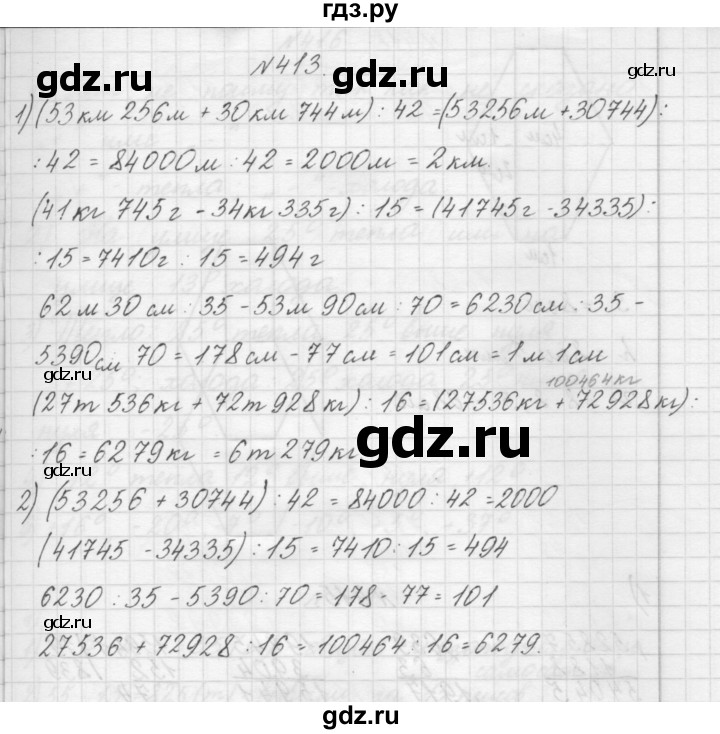 гдз.ру
№413.
gdz.ru gdz.ru
1) (53км 256м + 30км 744м) : 42 = (53256м + 30744) :
: 42 = 84000м : 42 = 2000м = 2км
(41кг 745г - 34кг 335г) : 15 = (41745г - 34335) :
gdz.ru
: 15 = 7410г : 15 = 494г
62м 30см : 35 - 53м 90см : 70 = 6230см : 35 -
5390см 70 = 178см - 77см = 101см = 1м 1см
gdz.ru gdz.ru
100464кг
(27т 536кг + 72т 928кг) : 16 = (27536кг + 72928кг) :
: 16 = 6279кг = 6т 279кг
gdz.ru
gdz.ru
2) (53256 + 30744) : 42 = 84000 : 42 = 2000
(41745 - 34335) : 15 = 7410 : 15 = 494
gdz.ru gdz.ru
6230 : 35 - 5390 : 70 = 178 - 77 = 101
27536 + 72928 : 16 = 100464 : 16 = 6279.
gdz.ru gdz.ru
gdz.ru